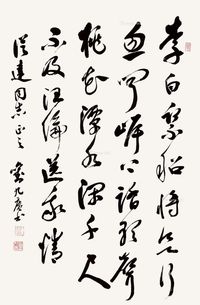 李白乘船将欲行
忽闻岸上踏歌声
桃花潭水深千尺
不及汪伦送我情
建同志正之